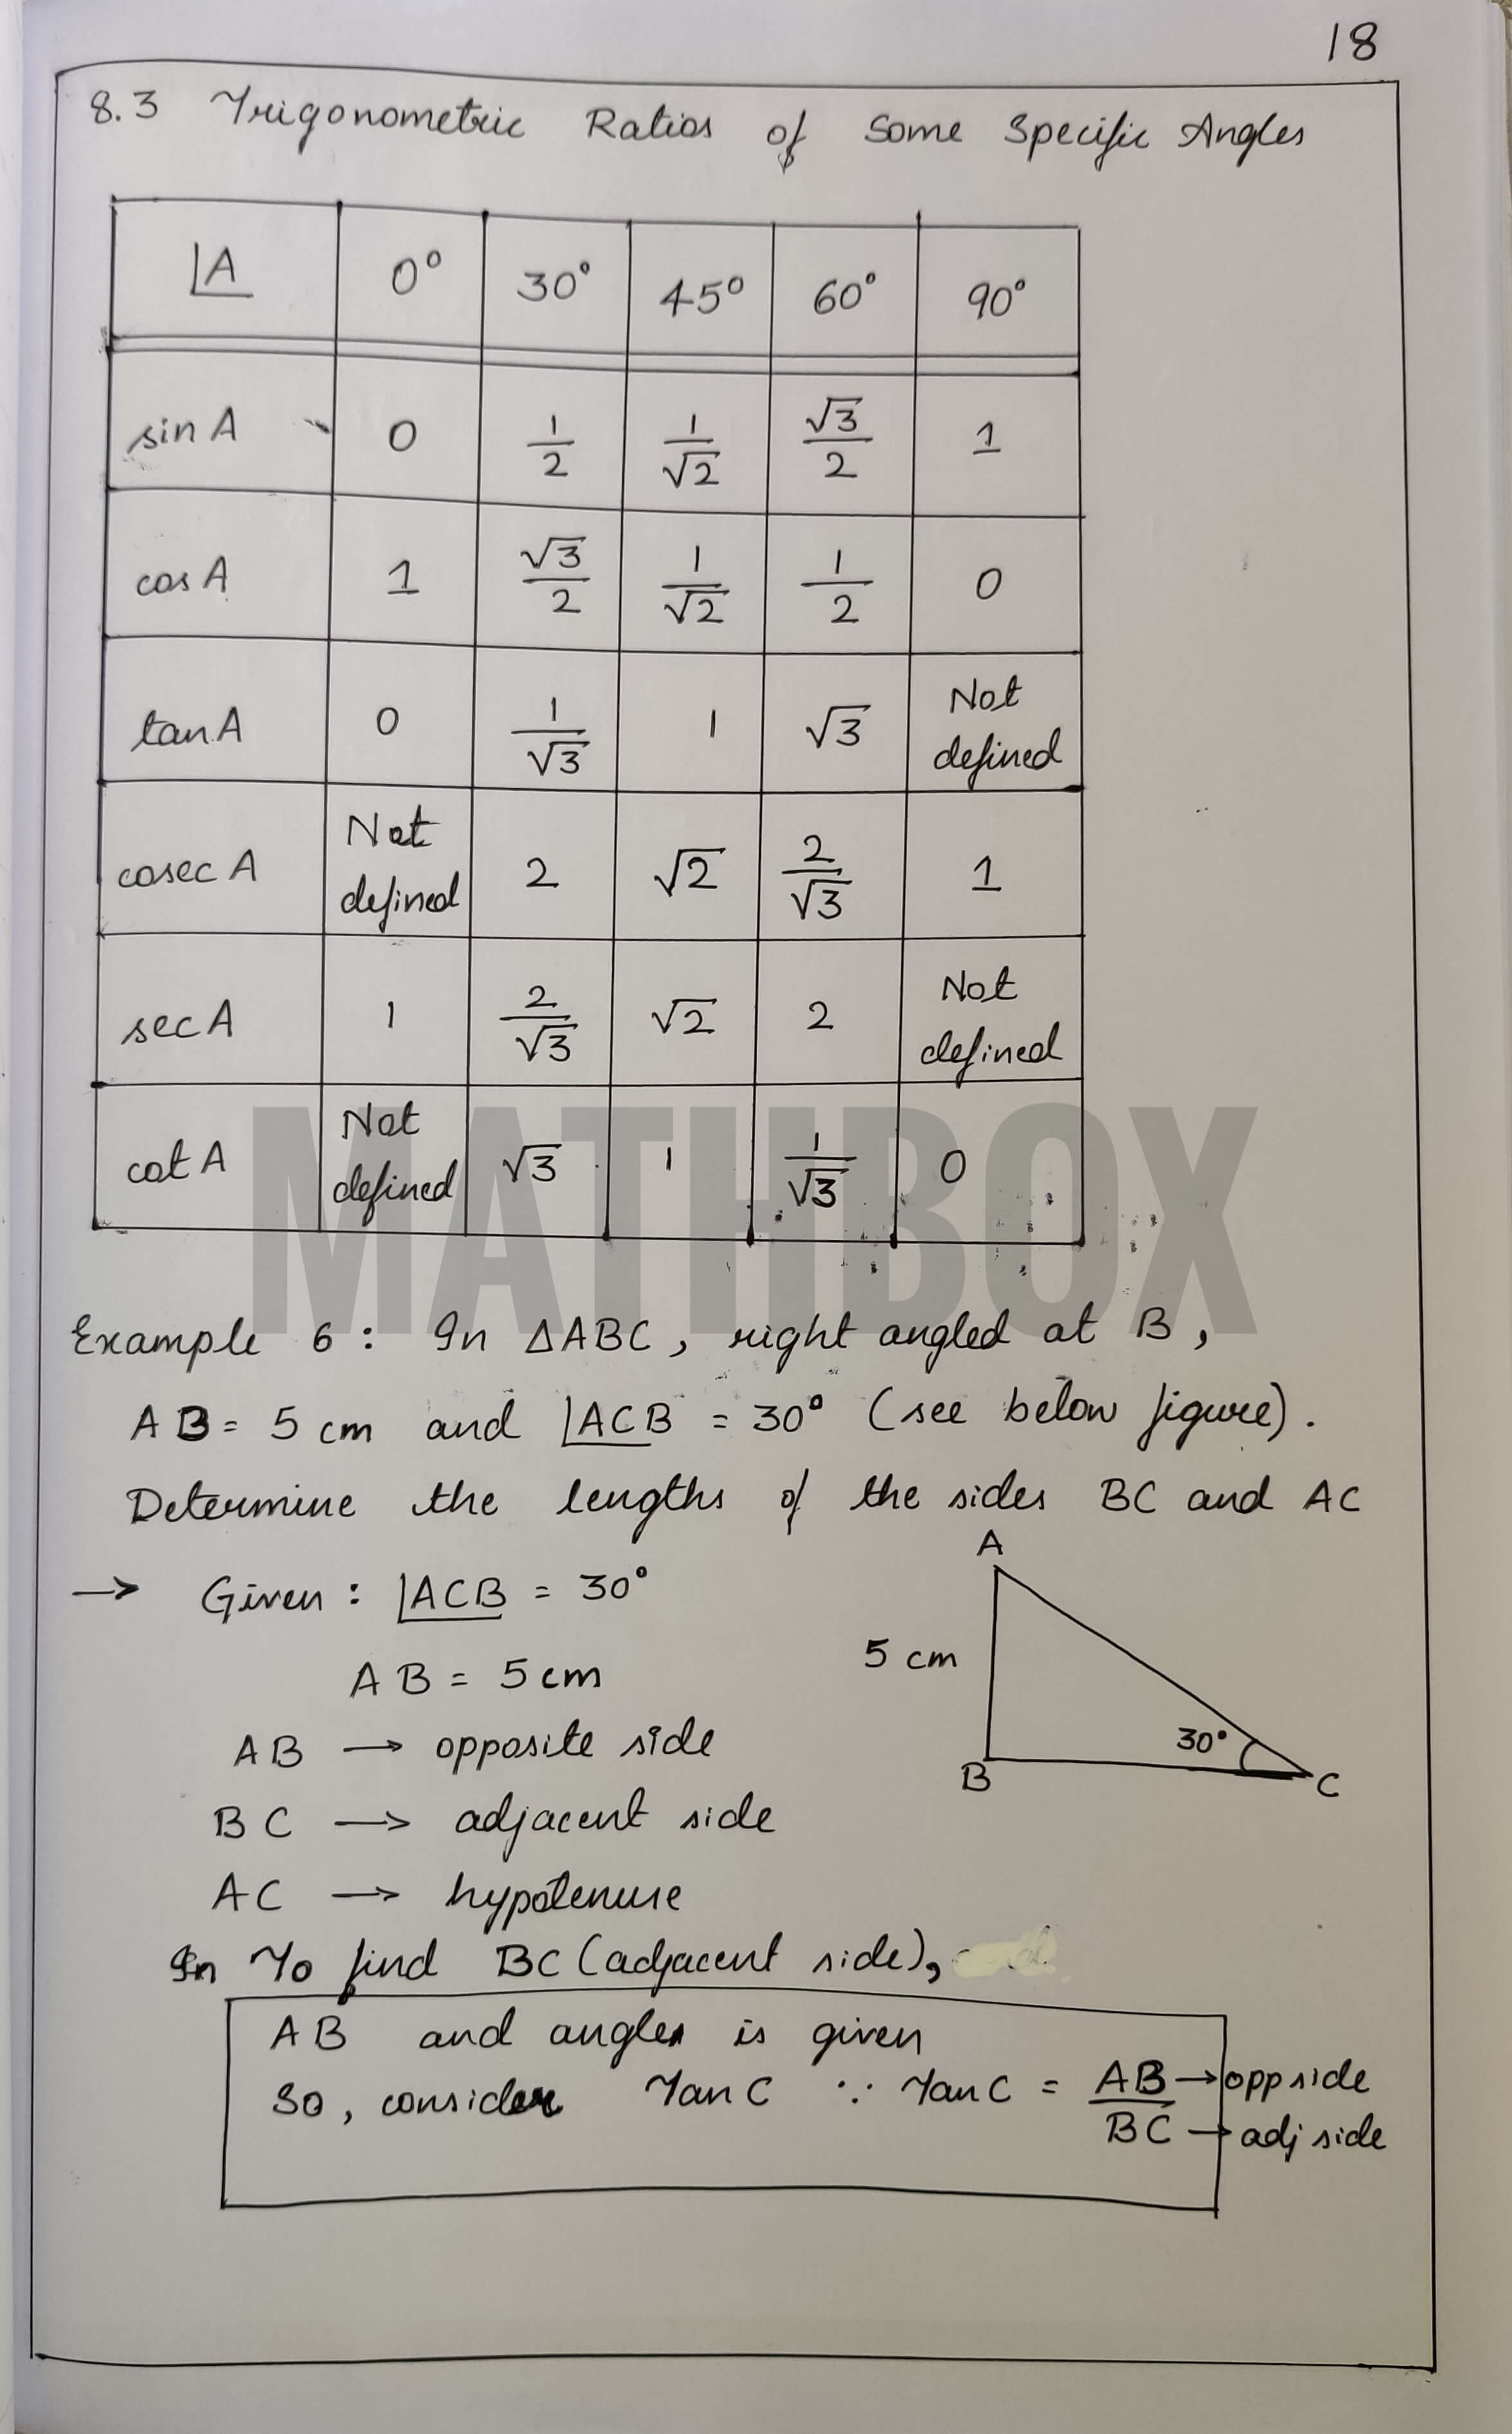 18
8.3 Trigonometric Ratios of Some Specific Angles
∠A 0° 30° 45° 60° 90°
sin A 0 1/2 1/√2 √3/2 1
cos A 1 √3/2 1/√2 1/2 0
tan A 0 1/√3 1 √3 Not defined
cosec A Not defined 2 √2 2/√3 1
sec A 1 2/√3 √2 2 Not defined
cot A Not defined √3 1 1/√3 0
MATHBOX
Example 6 : In ΔABC, right angled at B,
AB = 5 cm and ∠ACB = 30° (see below figure).
Determine the lengths of the sides BC and AC
→ Given : ∠ACB = 30°
AB = 5 cm
AB → opposite side
BC → adjacent side
AC → hypotenuse
A
5 cm
30°
B
C
In To find BC (adjacent side),
AB and angles is given
So, consider Tan C ∵ Tan C = AB/BC → opp side → adj side